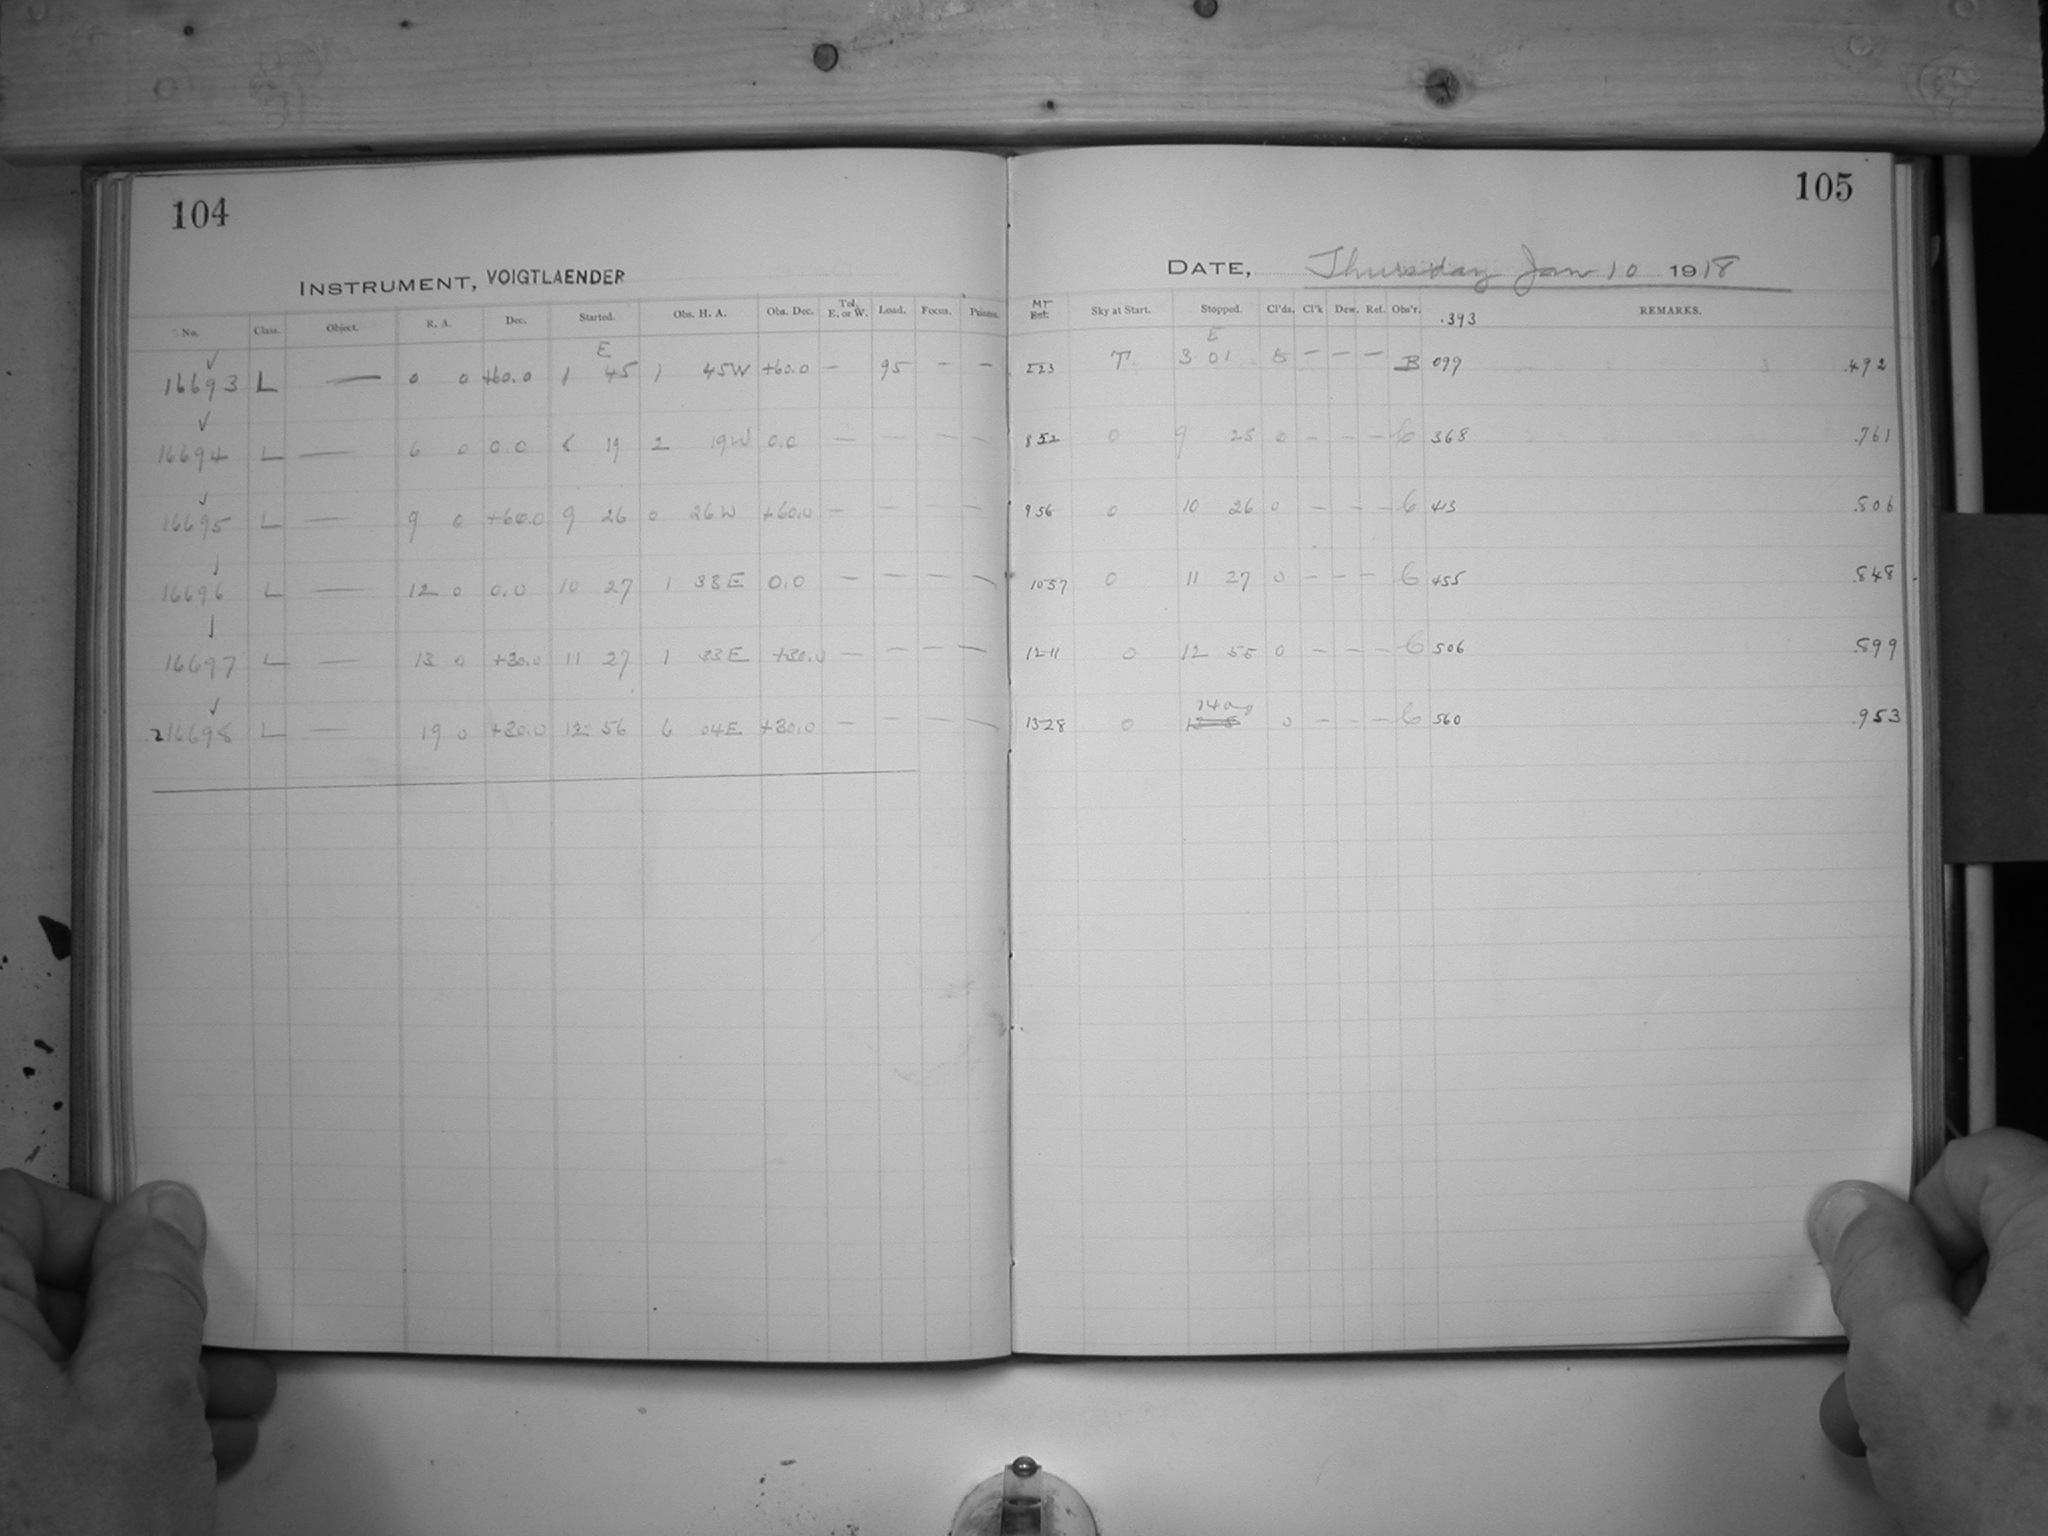 104
INSTRUMENT, VOIGTLAENDER
No. Class. Object. R. A. Dec. Started. Obs. H. A. Obs. Dec. Tel. E. or W. Load. Focus. Prisms.
E
16693 L — 0 0 +60.0 1 45 1 45W +60.0 — 95 — —
16694 L — 6 0 0.0 8 19 2 19W 0.0 — — — —
16695 L — 9 0 +60.0 9 26 0 26W +60.0 — — — —
16696 L — 12 0 0.0 10 27 1 33E 0.0 — — — —
16697 L — 13 0 +30.0 11 27 1 33E +30.0 — — — —
16698 L — 19 0 +30.0 12 56 6 04E +30.0 — — — —
105
DATE, Thursday Jan 10 1918
MT Est. Sky at Start. Stopped. Cl'ds. Cl'k Dew. Ref. Obs'r. .393 REMARKS.
E
223 T 3 01 5 — — — B 099 .492
852 0 9 25 0 — — — 6 368 .761
956 0 10 26 0 — — — 6 413 .806
1057 0 11 27 0 — — — 6 455 .848
1211 0 12 55 0 — — — 6 506 .899
1328 0 0 — — — 6 560 .953